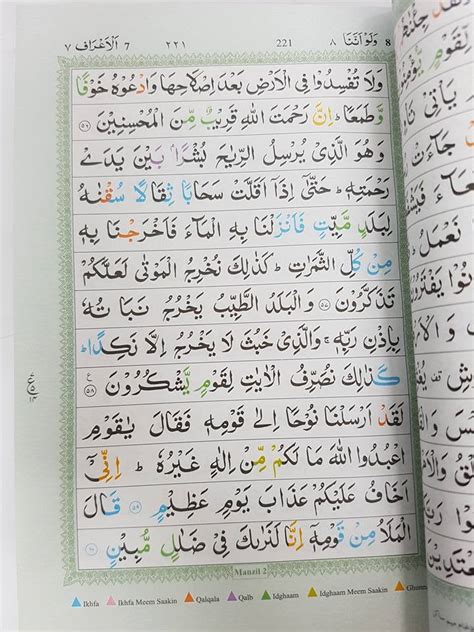 ٨ وَلَوْ اَنَّنَا 8
221
٢٢١
7 اَلْاَعْرَاف ٧
وَلَا تُفْسِدُوْا فِى الْاَرْضِ بَعْدَ اِصْلَاحِهَا وَادْعُوْهُ خَوْفًا
وَّطَمَعًا ؕ اِنَّ رَحْمَتَ اللّٰهِ قَرِيْبٌ مِّنَ الْمُحْسِنِيْنَ ۝۵۶
وَهُوَ الَّذِىْ يُرْسِلُ الرِّيٰحَ بُشْرًۢا بَيْنَ يَدَىْ
رَحْمَتِهٖ ؕ حَتّٰىٓ اِذَاۤ اَقَلَّتْ سَحَابًا ثِقَالًا سُقْنٰهُ
لِبَلَدٍ مَّيِّتٍ فَاَنْزَلْنَا بِهِ الْمَآءَ فَاَخْرَجْنَا بِهٖ
مِنْ كُلِّ الثَّمَرٰتِ ؕ كَذٰلِكَ نُخْرِجُ الْمَوْتٰى لَعَلَّكُمْ
تَذَكَّرُوْنَ ۝۵۷ وَالْبَلَدُ الطَّيِّبُ يَخْرُجُ نَبَاتُهٗ
بِاِذْنِ رَبِّهٖ ۚ وَالَّذِىْ خَبُثَ لَا يَخْرُجُ اِلَّا نَكِدًا ؕ
كَذٰلِكَ نُصَرِّفُ الْاٰيٰتِ لِقَوْمٍ يَّشْكُرُوْنَ ۝۵۸
لَقَدْ اَرْسَلْنَا نُوْحًا اِلٰى قَوْمِهٖ فَقَالَ يٰقَوْمِ
اعْبُدُوا اللّٰهَ مَا لَكُمْ مِّنْ اِلٰهٍ غَيْرُهٗ ؕ اِنِّىْۤ
اَخَافُ عَلَيْكُمْ عَذَابَ يَوْمٍ عَظِيْمٍ ۝۵۹ قَالَ
الْمَلَاُ مِنْ قَوْمِهٖۤ اِنَّا لَنَرٰىكَ فِىْ ضَلٰلٍ مُّبِيْنٍ ۝۶۰
Manzil 2
Ikhfa Ikhfa Meem Saakin Qalqala Qalb Idghaam Idghaam Meem Saakin